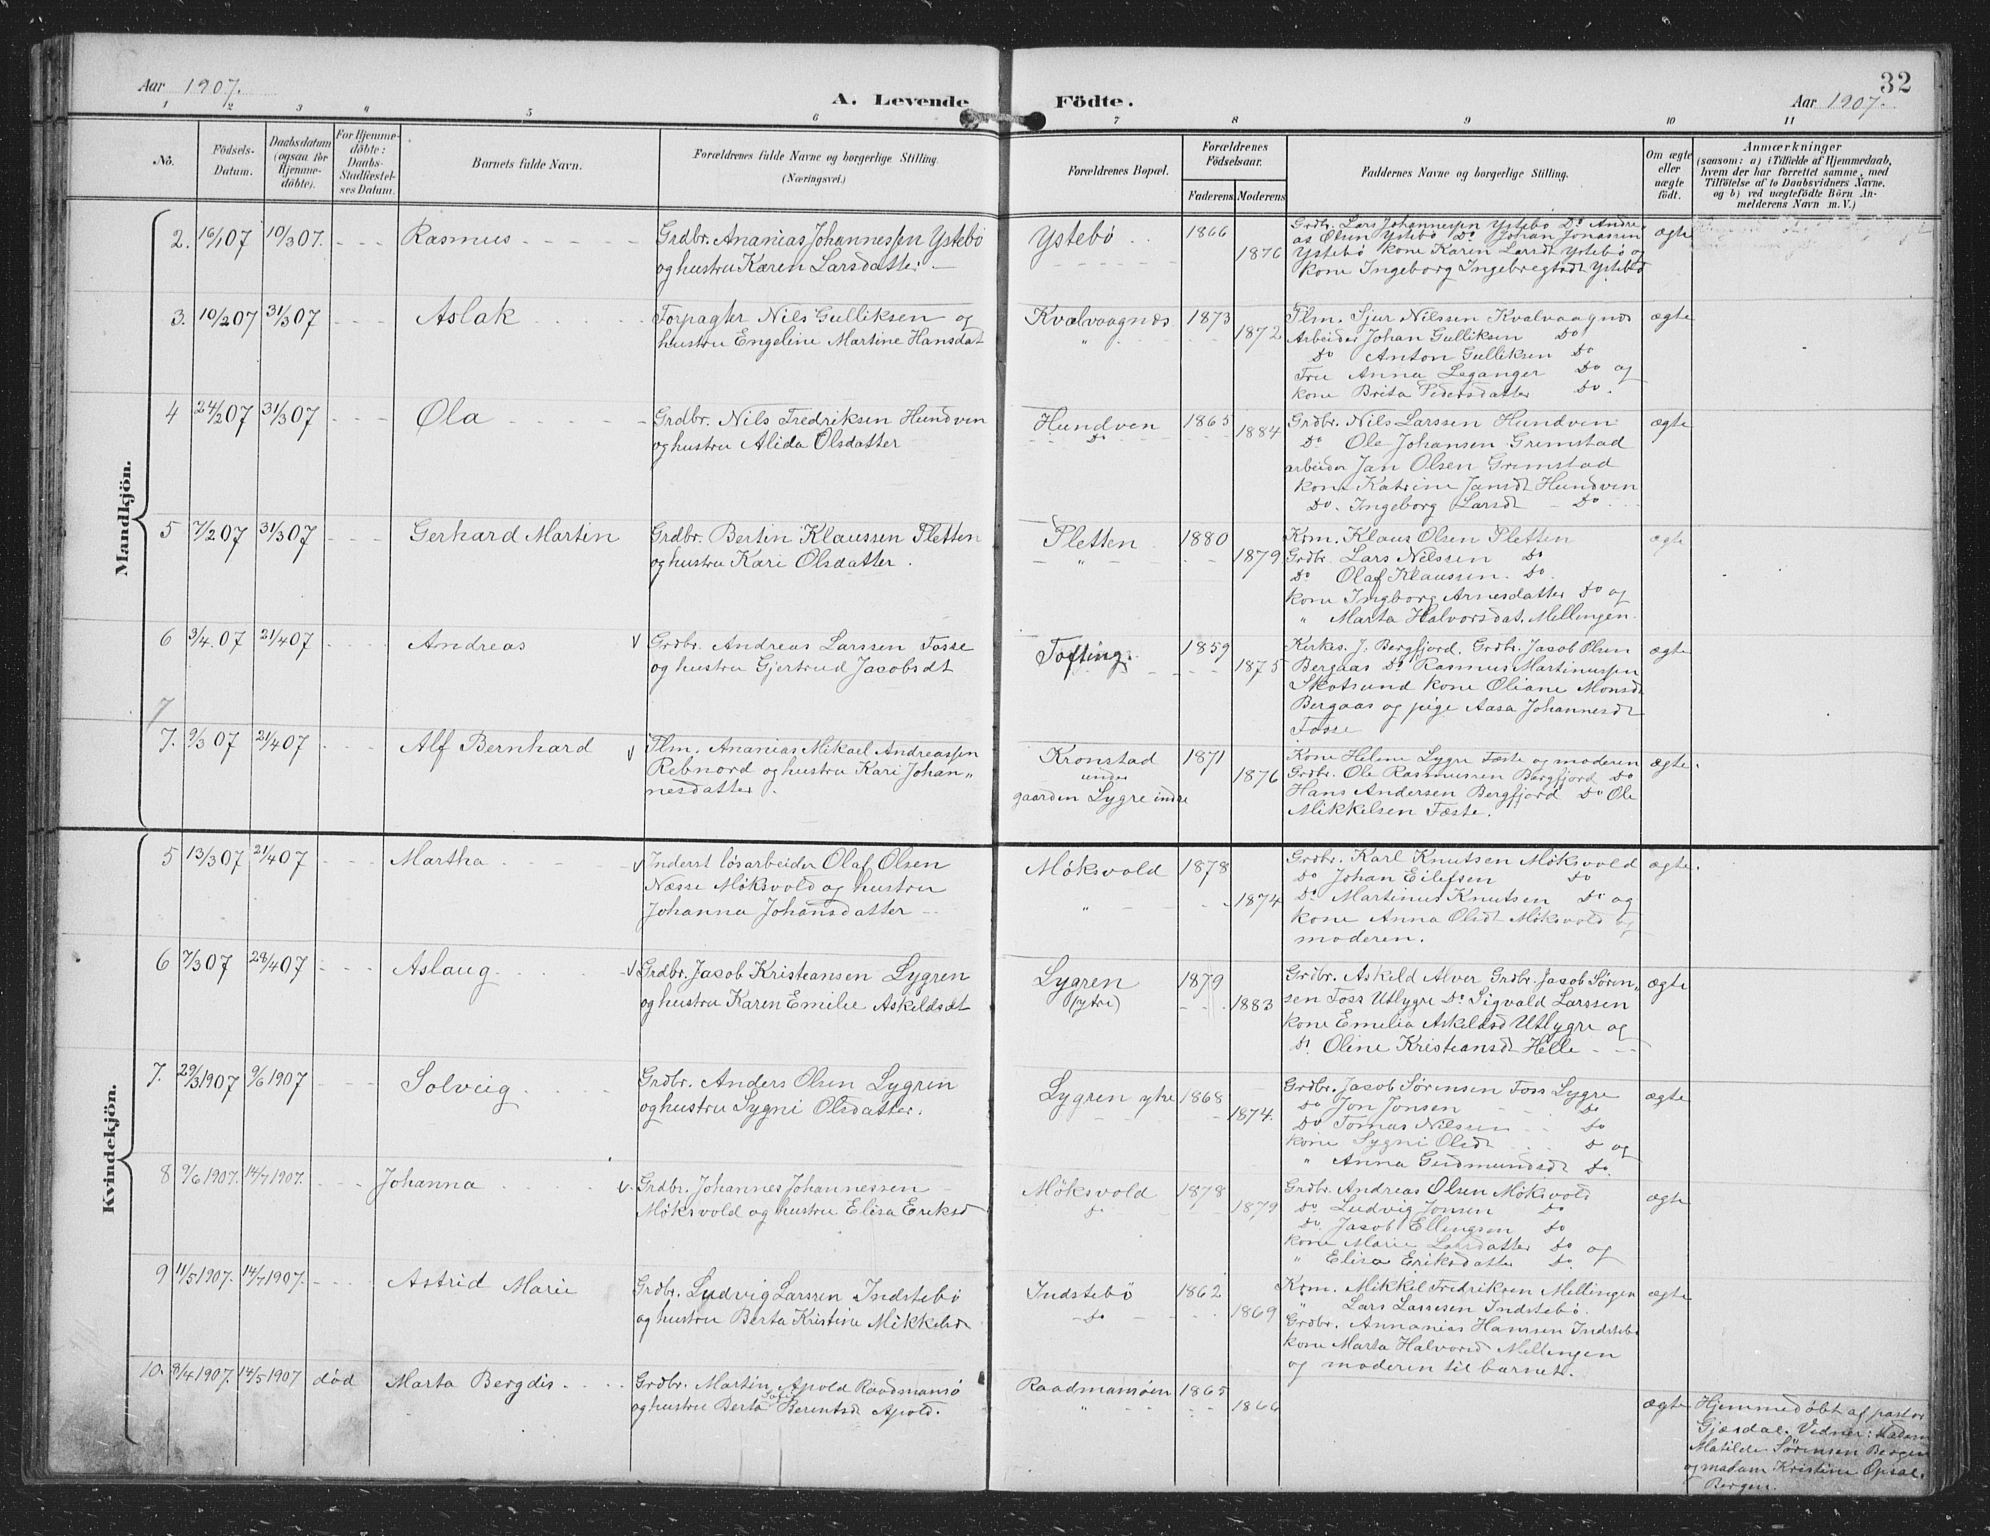 Aar 1907.
A. Levende Födte.
32
Aar 1907.
1 2 3 " 5 6 7 8 9 10 11
No.
Födsels-Datum.
Daabsdatum (ogsaa for Hjemmedöbte).
For Hjemmedöbte: Daabs-Stadfæstelses Datum.
Barnets fulde Navn.
Forældrenes fulde Navne og borgerlige Stilling. (Næringsvei.)
Forældrenes Bopæl.
Forældrenes Födselsaar.
Faderens Moderens
Faddernes Navne og borgerlige Stilling.
Om ægte eller uægte födt.
Anmærkninger
(saasom: a) i Tilfælde af Hjemmedaab, hvem der har forrettet samme, med Tilföielse af to Daabsvidners Navne. og b) ved uægtefödte Börn Anmelderens Navn m. V.)
Mandkjön.
2. 16/1 07 10/3 07. Rasmus
Grdbr. Ananias Johannessen Ystebö
og hustru Karen Larsdatter.
Ystebö 1866 1876
Grdbr. Lars Johannessen Ystebö Do Andre
as Olsen Ystebö Do Johan Jonassen
Ystebö kone Karen Larsdt Ystebö og
kone Ingeborg Ingebregtsdt Ystebö
ægte
3. 10/2 07 31/3 07 Aslak
Forpagter Nils Gulliksen og
hustru Engeline Martine Hansdat
Kvalvaagnæs 1873 1872
Flm. Sjur Nilssen Kvalvaagnes
Arbeider Johan Gulliksen Do
Do Anton Gulliksen Do
Fru Anna Leganger Do og
kone Brita Pedersdatter Do.
ægte
4 24/2 07 31/3 07 Ola
Grdbr. Nils Fredriksen Hundven
og hustru Alida Olsdatter
Hundven Do 1865 1884
Grdbr. Nils Larssen Hundven
Do Ole Johansen Grimstad
arbeider Jan Olsen Grimstad
kone Katrine Jansdt Hundven
Do. Ingeborg Larsdt Do
ægte
5 7/2 07 31/3 07 Gerhard Martin
Grdbr. Bertin Klaussen Pletten
og hustru Kari Olsdatter.
Pletten 1880 1879
Kom. Klaus Olsen Pletten
Grdbr. Lars Nilssen Do
Do Olaf Klaussen. Do.
kone Ingborg Arnesdatter Do og
" Marta Halvorsdat. Mellingen
ægte
6 3/4 07 21/4 07 Andreas
v Grdbr. Andreas Larssen Fosse
og hustru Gjertrud Jacobsdt
Tofting. 1859 1875
Kirkes. J. Bergfjord. Grdbr. Jacob Olsen
Bergaas Do Rasmus Martinussen
Skotsund kone Oliane Monsdt
Bergaas og pige Aasa Johannesdt
Fosse
ægte
7
7. 9/3 07 21/4 07 Alf Bernhard
v Flm. Ananias Mikael Andreassen
Rebnord og hustru Kari Johan„
nesdatter.
Kronstad
under
gaarden Lygre indre
1871 1876
Kone Helene Lygre Fæste og moderen
Grdbr. Ole Rasmussen Bergfjord Do
Hans Andersen Bergfjord Do Ole
Mikkelsen Fæste.
ægte
Kvindekjön.
5 13/3 07 21/4 07 Martha
v Inderst løsarbeider Olaf Olsen
Næsse Møksvold og hustru
Johanna Johansdatter
Møksvold 1878 1874
Grdbr. Karl Knutsen Møksvold
Do Johan Eilefsen Do
Do Martinus Knutsen Do og
kone Anna Olsdt Møksvold og
moderen.
ægte
6 7/3 07 28/4 07 Aslaug
v Grdbr. Jacob Kristeansen Lygren
og hustru Karen Emilie Askeldsdt
Lygren
(ytre)
1879 1883
Grdbr. Askeld Alver Grdbr. Jacob Sören„
sen Foss Utlygre Do Sigvald Larssen
kone Emelia Askeldsd Utlygre og
Do Oline Kristeansdt Helle
ægte
7. 29/3 1907 9/6 1907 Solveig
Grdbr. Anders Olsen Lygren
og hustru Sygni Olsdatter.
Lygren ytre 1868 1874.
Grdbr. Jacob Sörensen Foss Lygre
Do Jon Jonsen Do
Do Tomas Nilssen Do
kone Sygni Olsdt D og
" Anna Gudmundsdt Do.
ægte
8 9/6 1907. 14/7 1907. Johanna
v. Grdbr. Johannes Johannessen
Møksvold og hustru Elisa Eriksd
Møksvold Do 1878 1879
Grdbr. Andreas Olsen Møksvold
Do Ludvig Jonsen Do
Do. Jacob Ellingsen Do
kone Marie Larsdatter Do og
" Elisa Eriksdatter Do.
ægte
9 11/5 1907. 14/7 1907. Astrid Marie
Grdbr. Ludvig Larssen Indstebö
og hustru Berta Kristine Mikkelsd
Indstebö Do 1862 1869
Kom. Mikkel Fredriksen Mellingen
" Lars Lassesen Indstebö.
Grdbr. Annanias Hanssen Indstebö
kone Marta Halvorsd Mellingen
og moderen til barnet.
ægte
10. 8/4 1907. 14/5 1907 död Marta Bergdis.
Grdbr. Martin Apold Raadmansö
og hustru Berta Sofie Berentsd Apold.
Raadmansöen 1865 1866
ægte
Hjemmedöbt af pastor
Gjæsdal. Vidner: Madam
Matilde Sörensen Bergen
og madam Kristine Opsal.
Bergen.